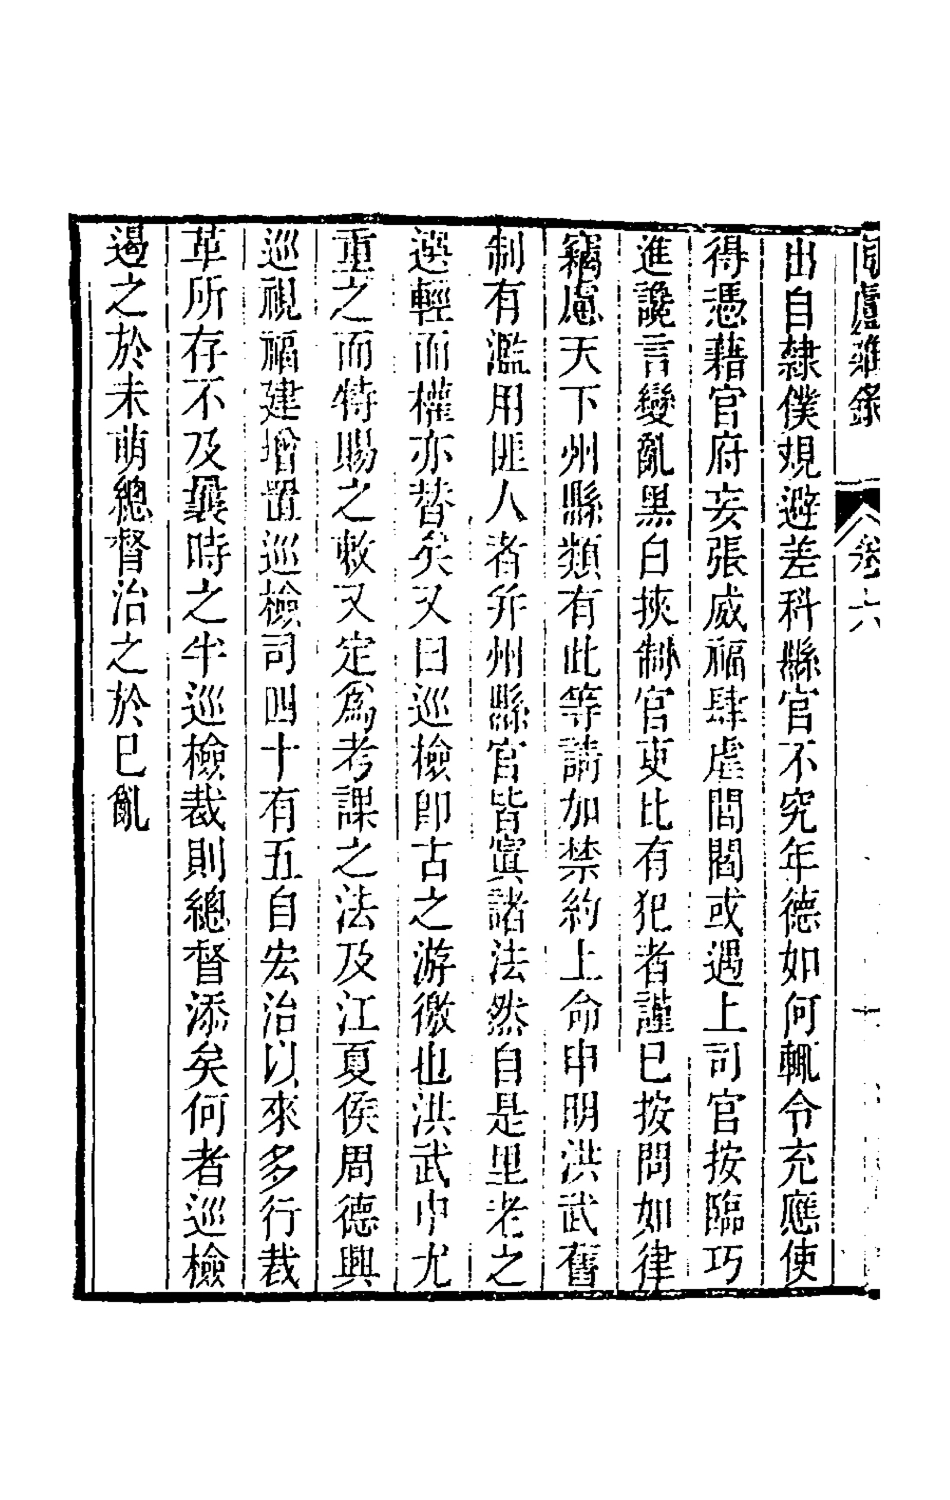 廬雜錄 卷六
出自隸僕規避差科縣官不究年德如何輒令充應使
得憑藉官府妄張威福肆虐閭閻或遇上司官按臨巧
進讒言變亂黑白挾制官吏比有犯者謹已按問如律
竊慮天下州縣類有此等請加禁約上命申明洪武舊
制有濫用匪人者并州縣官皆寘諸法然自是里老之
選輕而權亦替矣又曰巡檢卽古之游徼也洪武中尤
重之而特賜之敕又定爲考課之法及江夏侯周德興
巡視福建增置巡檢司四十有五自宏治以來多行裁
革所存不及曩時之半巡檢裁則總督添矣何者巡檢
遏之於未萌總督治之於已亂